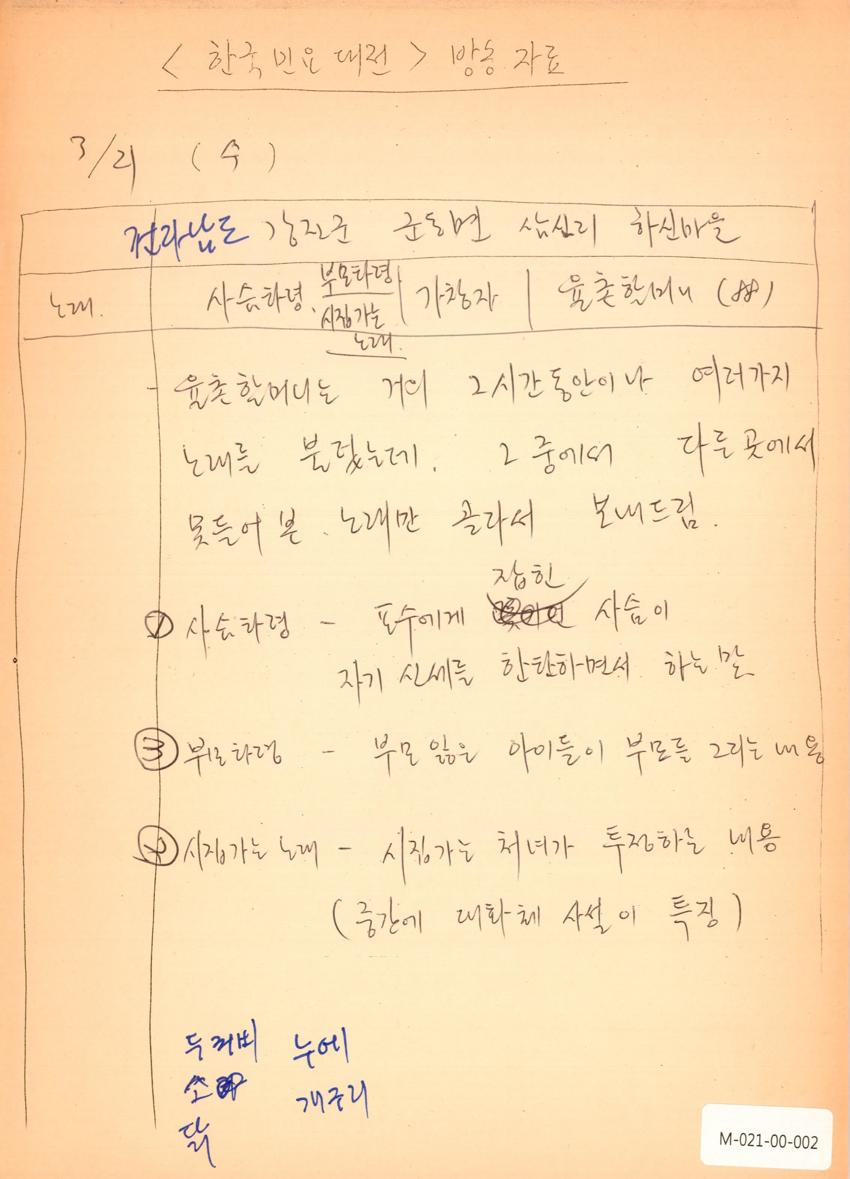 < 한국민요대전 > 방송자료
3/21 ( 수 )
전라남도 강진군 군동면 삼신리 하신마을
노래. 사슴타령. 부모타령 시집가는 노래. 가창자 율촌할머니 (88)
- 율촌할머니는 거의 2시간동안이나 여러가지
노래를 불렀는데. 그 중에서 다른곳에서
못들어 본. 노래만 골라서 보내드림.
① 사슴타령 - 포수에게 잡힌 사슴이
자기 신세를 한탄하면서 하는 말
③ 부모타령 - 부모 잃은 아이들이 부모를 그리는 내용
② 시집가는 노래 - 시집가는 처녀가 투정하는 내용
( 중간에 대화체 사설이 특징 )
두꺼비 누에
소 개구리
닭
M-021-00-002